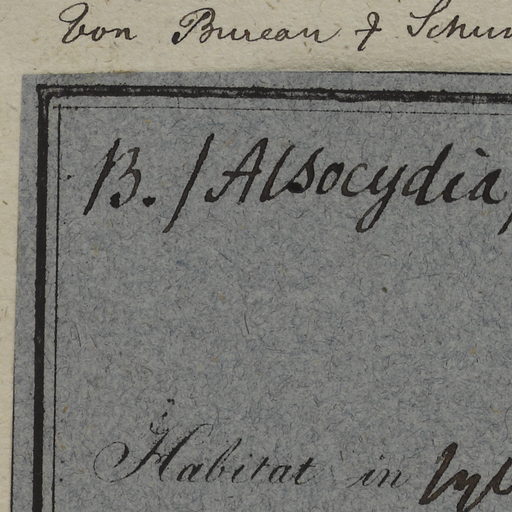 Von Bureau & Schum
B. /Alsocydia/
Habitat in sylv